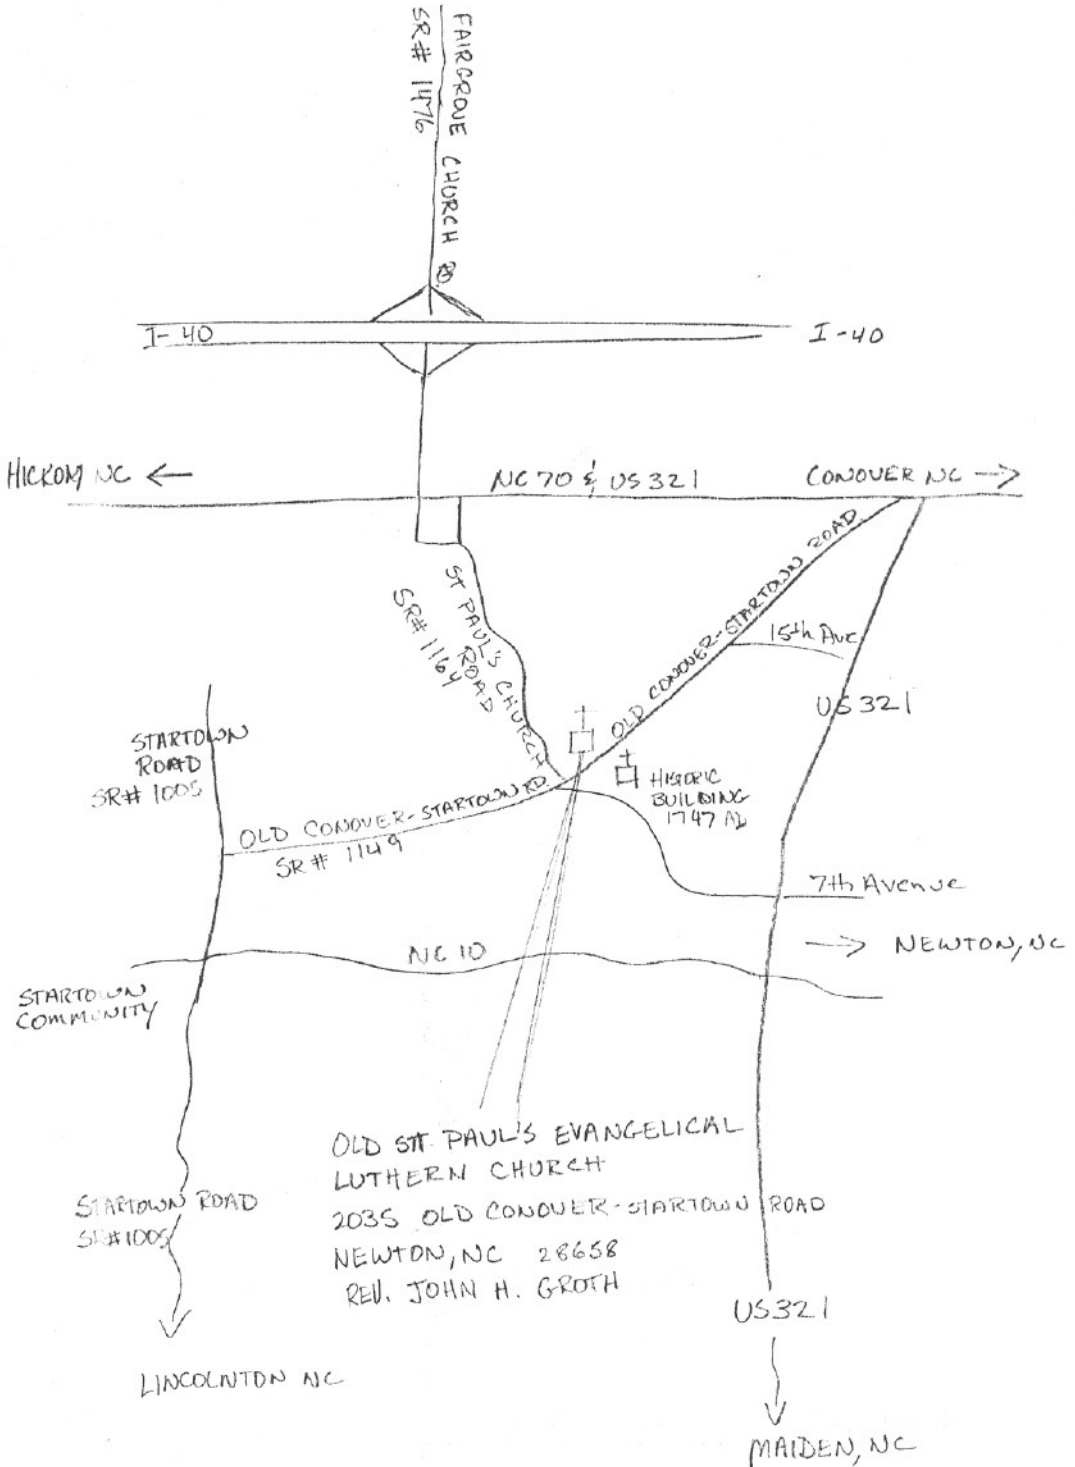 FAIRGROVE CHURCH RD.
SR# 1476
I-40
I-40
HICKORY NC
NC 70 & US 321
CONOVER NC
ST PAUL'S CHURCH
ROAD
SR# 1164
OLD CONOVER-STARTOWN ROAD
15th Ave
US 321
STARTOWN
ROAD
SR# 1005
HISTORIC
BUILDING
1747 AD
OLD CONOVER-STARTOWN RD.
SR# 1149
7th Avenue
NC 10
NEWTON, NC
STARTOWN
COMMUNITY
OLD ST. PAUL'S EVANGELICAL
LUTHERN CHURCH
2035 OLD CONOVER-STARTOWN ROAD
NEWTON, NC 28658
REV. JOHN H. GROTH
STARTOWN ROAD
SR#1005
US 321
LINCOLNTON NC
MAIDEN, NC